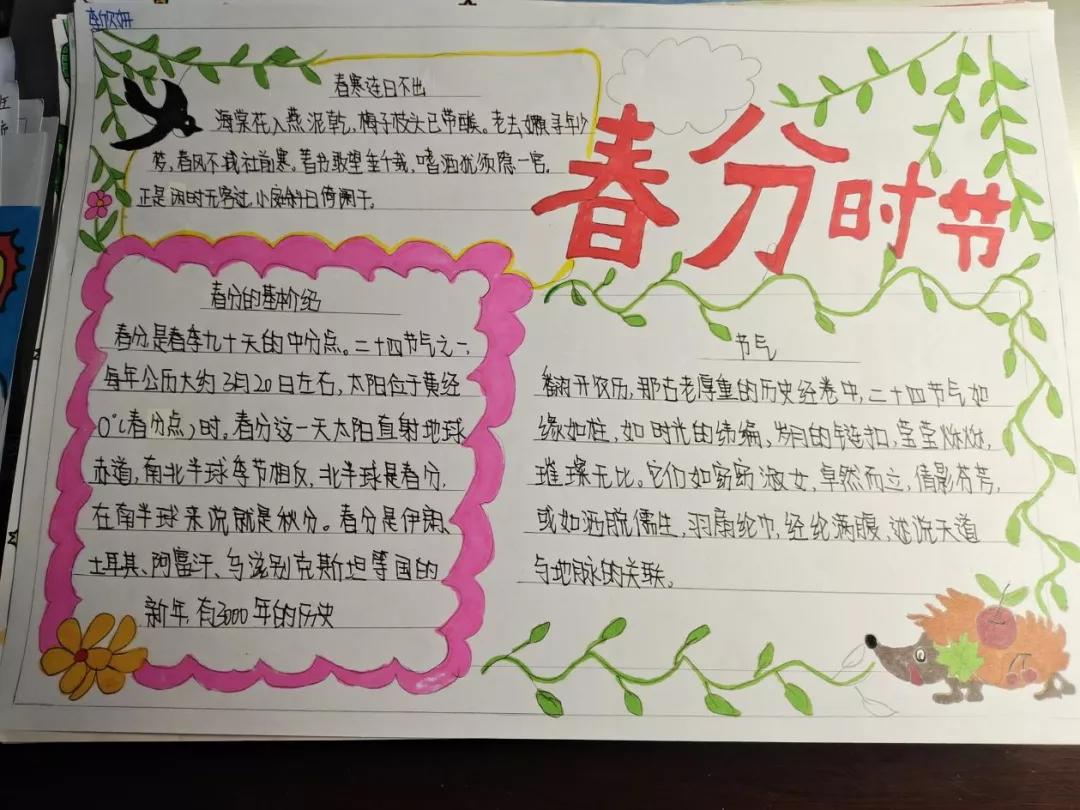 春分时节
春寒连日不出
海棠花入燕泥乾，梅子枝头已带酸。老去懒寻年少
梦，春风不栽社前寒。苦书敢望垂千载，嗜酒犹须隐一宫。
正是闲时无客过，小庭斜日倚阑干。
春分的基本介绍
春分是春季九十天的中分点。二十四节气之一，
每年公历大约3月20日左右，太阳位于黄经
0°（春分点）时。春分这一天太阳直射地球
赤道，南北半球季节相反，北半球是春分，
在南半球来说就是秋分。春分是伊朗、
土耳其、阿富汗、乌兹别克斯坦等国的
新年，有3000年的历史
节气
翻开农历，那古老厚重的历史经卷中，二十四节气如
缘如柱，如时光的纬编，岁月的链扣，莹莹烁烁，
璀璨无比。它们如窈窈淑女，卓然而立，倩影芬芳，
或如洒脱儒生，羽扇纶巾，经纶满腹，述说天道
与地脉的关联。